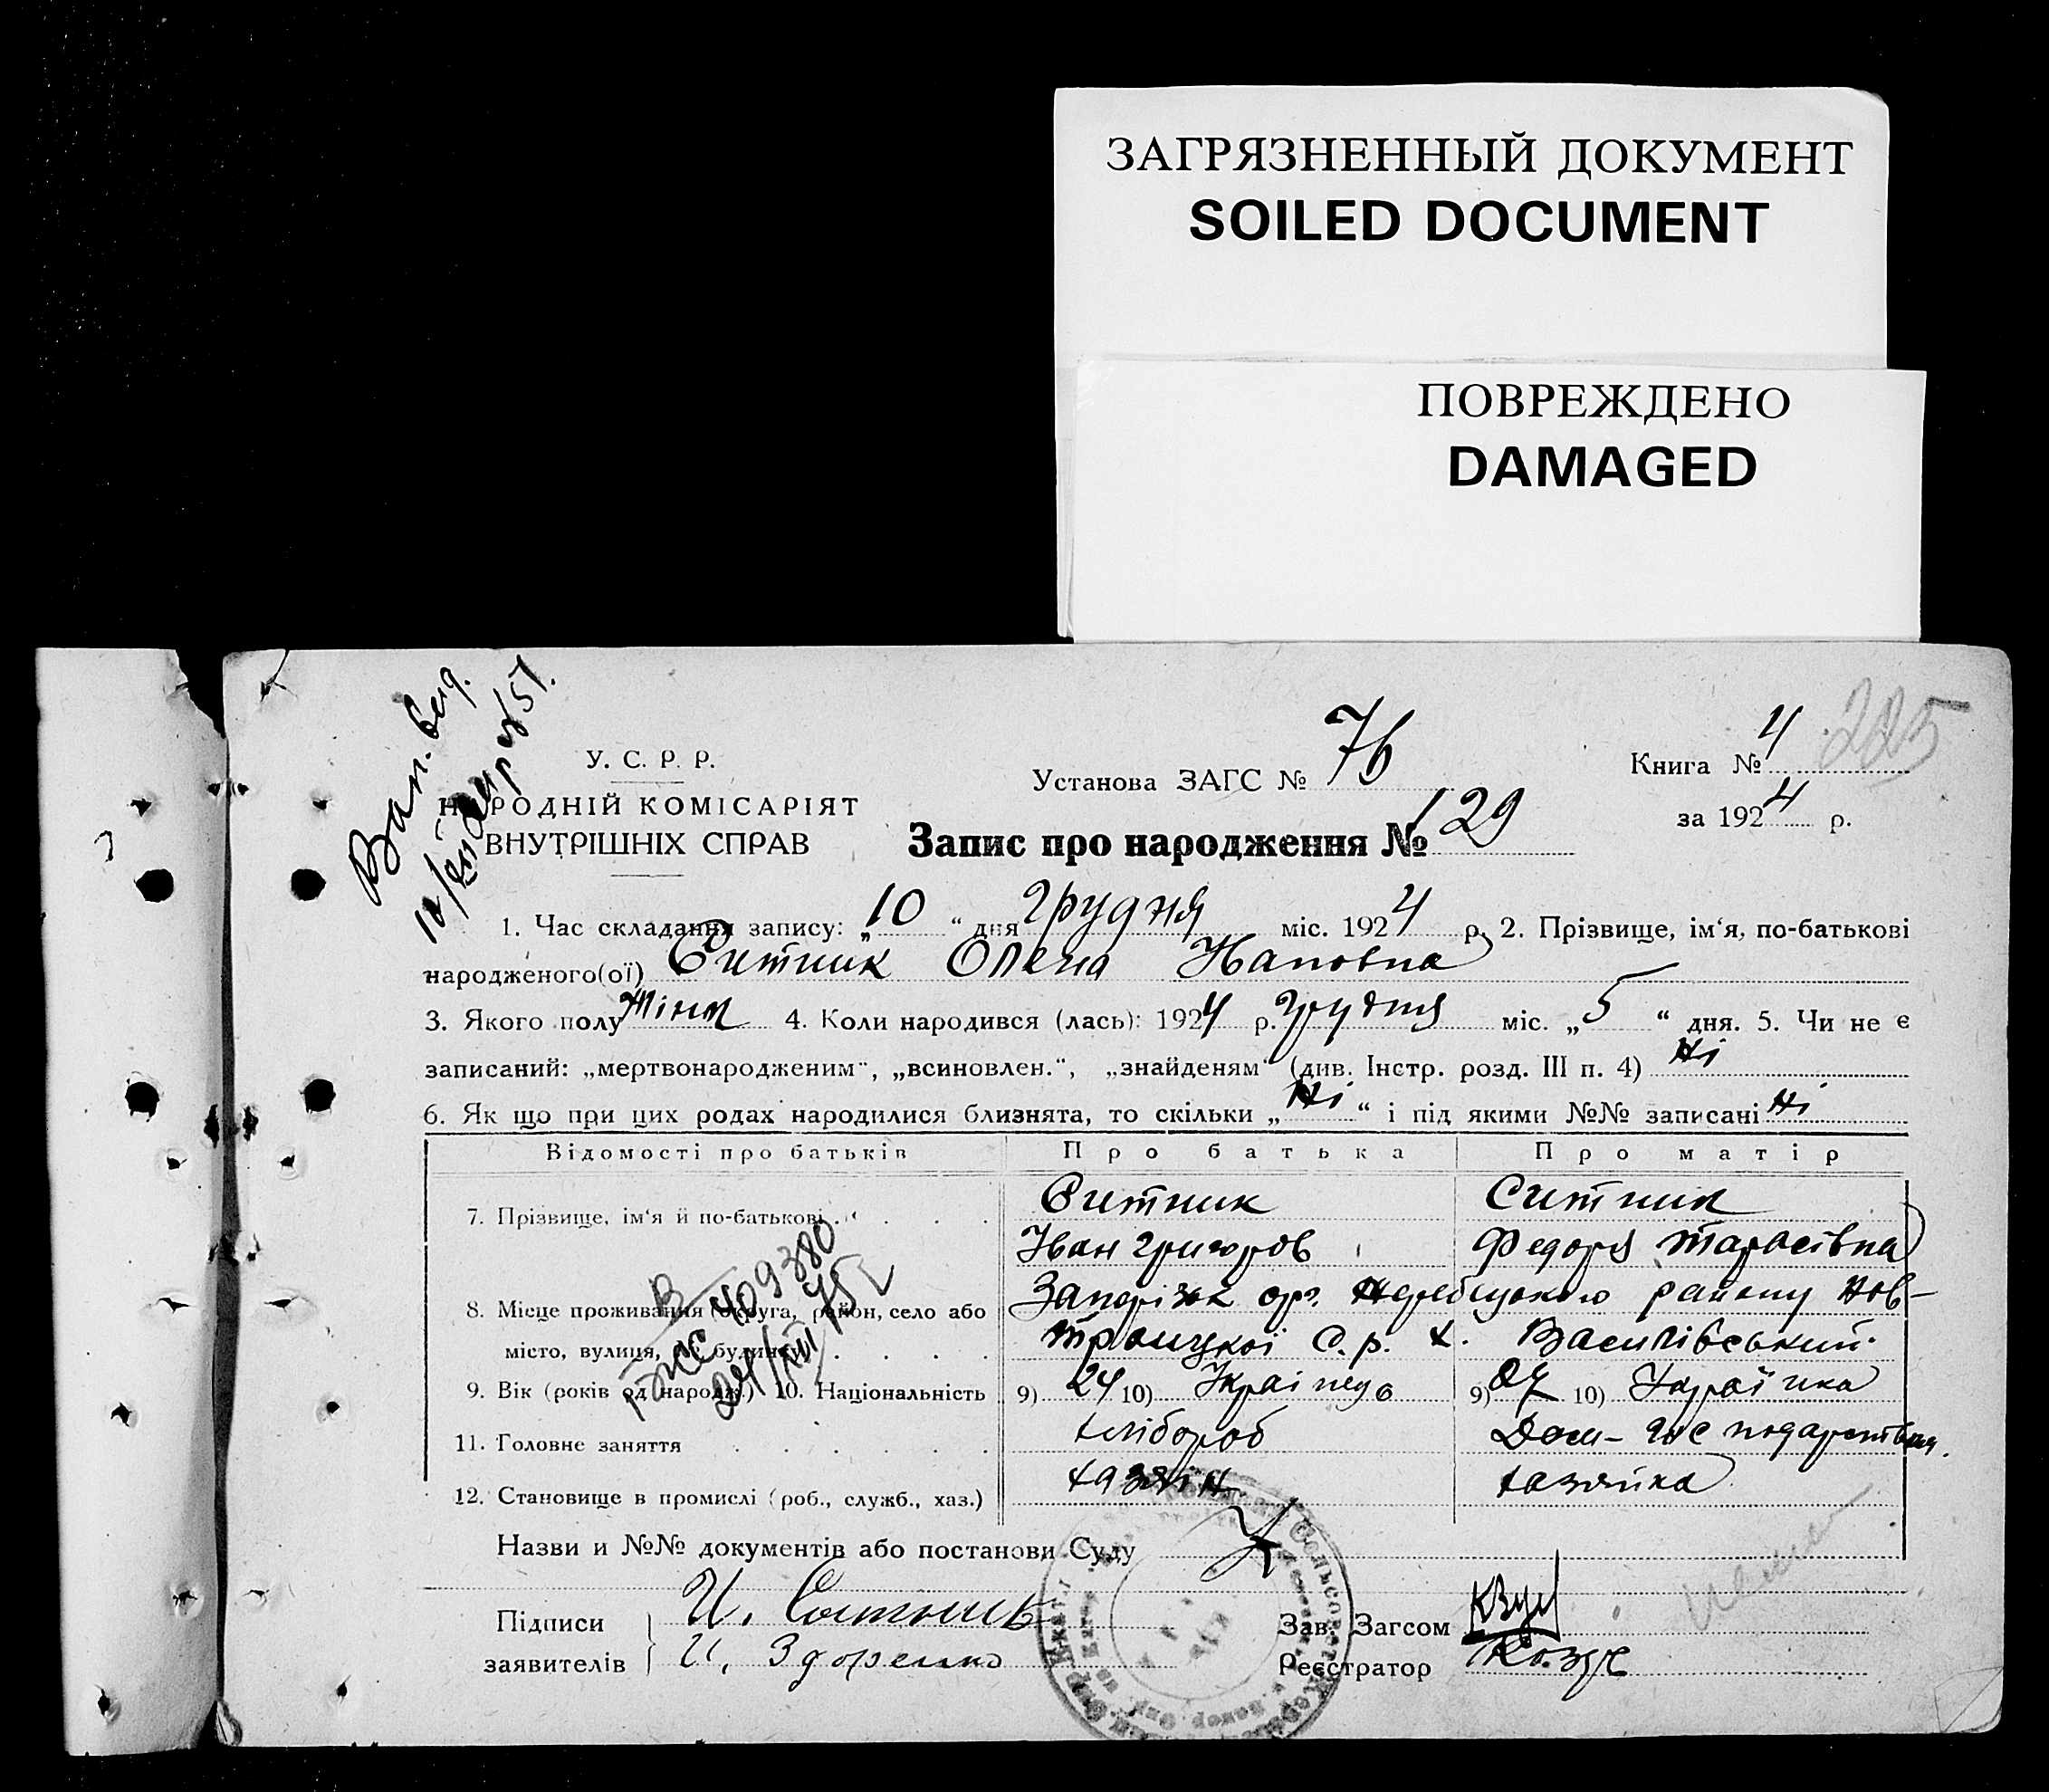 ЗАГРЯЗНЕННЫЙ ДОКУМЕНТ
SOILED DOCUMENT
ПОВРЕЖДЕНО
DAMAGED
225
У. С. Р. Р.
НАРОДНІЙ КОМІСАРІЯТ
ВНУТРІШНІХ СПРАВ
Установа ЗАГС № 76
Книга № 4
за 1924 р.
Запис про народження № 129
1. Час складання запису: „10“ дня Грудня міс. 1924 р. 2. Прізвище, ім‘я, по-батькові
народженого(ої) Ситник Олена
3. Якого полу Жіноч 4. Коли народився (лась): 1924 р. Грудня міс. „5“ дня. 5. Чи не є
записаний: „мертвонародженим“, „всиновлен.“, „знайденям“ (див. Інстр. розд. III п. 4) Ні
6. Як що при цих родах народилися близнята, то скільки „Ні“ і під якими №№ записані Ні
Відомості про батьків Про батька Про матір
7. Прізвище, ім‘я й по-батькові Ситник Ситник
Іван Григоров Федора Тарасівна
8. Місце проживання (округа, район, село або Запоріжк окр. району Нов-
місто, вулиця, № будинку) троіцкоі С.р. х. Василівський
9. Вік (років од народж.) 10. Національність 9) 24 10) Украінець 9) 10) Украінка
11. Головне заняття хлібороб Дом-господарство
12. Становище в промислі (роб., служб., хаз.) хазяін хазяйка
Назви и №№ документів або постанови Суду
Підписи И. Сытник
заявителів И. Здоренко
Зав. Загсом
Реєстратор